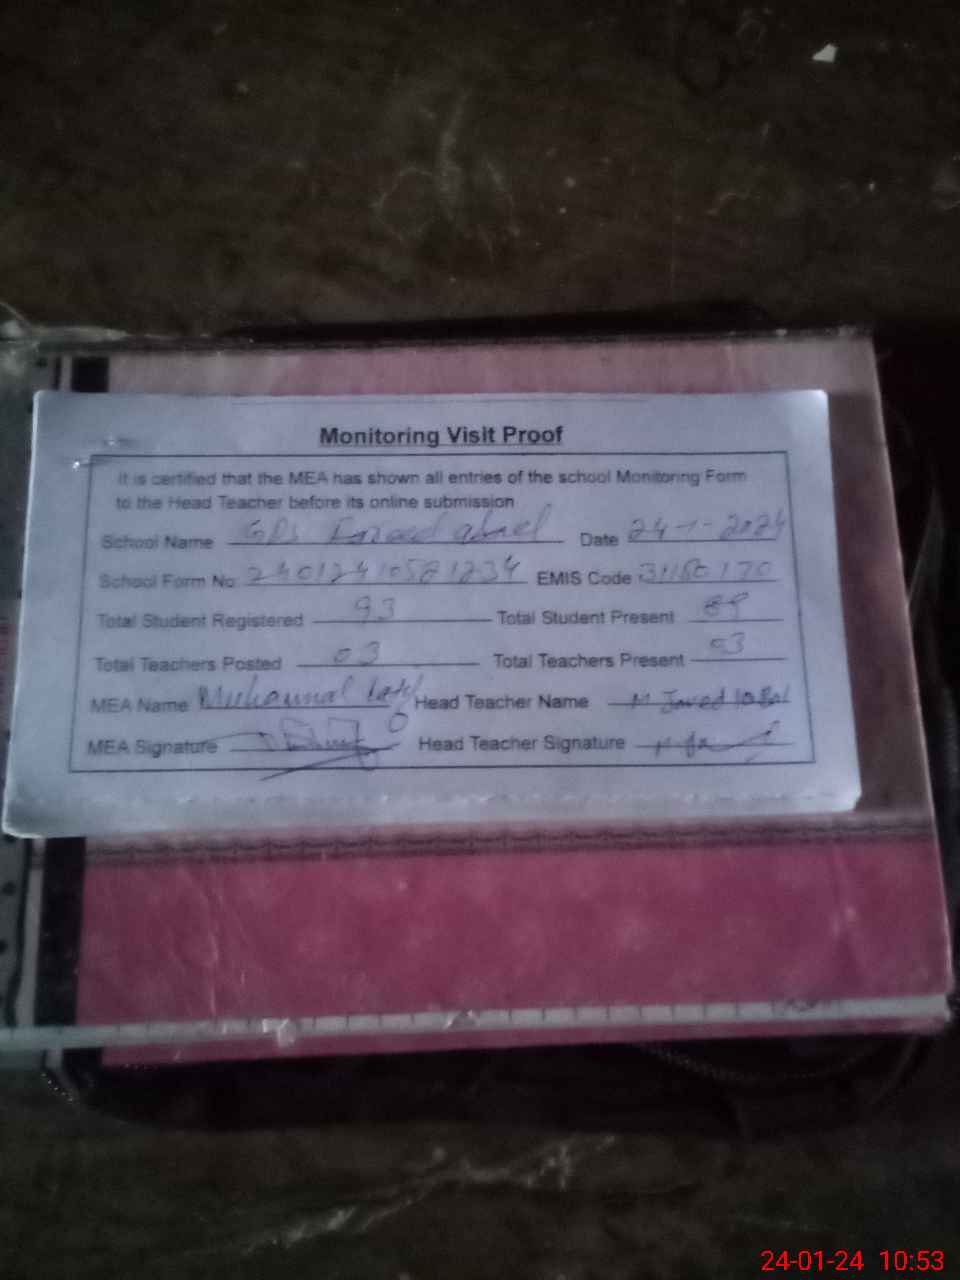 Monitoring Visit Proof
It is certified that the MEA has shown all entries of the school Monitoring Form
to the Head Teacher before its online submission
School Name GPS Date 24-1-2024
School Form No 240124105821234 EMIS Code 31180170
Total Student Registered 93 Total Student Present 89
Total Teachers Posted 03 Total Teachers Present 03
MEA Name Muhammad Latif Head Teacher Name M Javed Iqbal
MEA Signature Head Teacher Signature
24-01-24 10:53